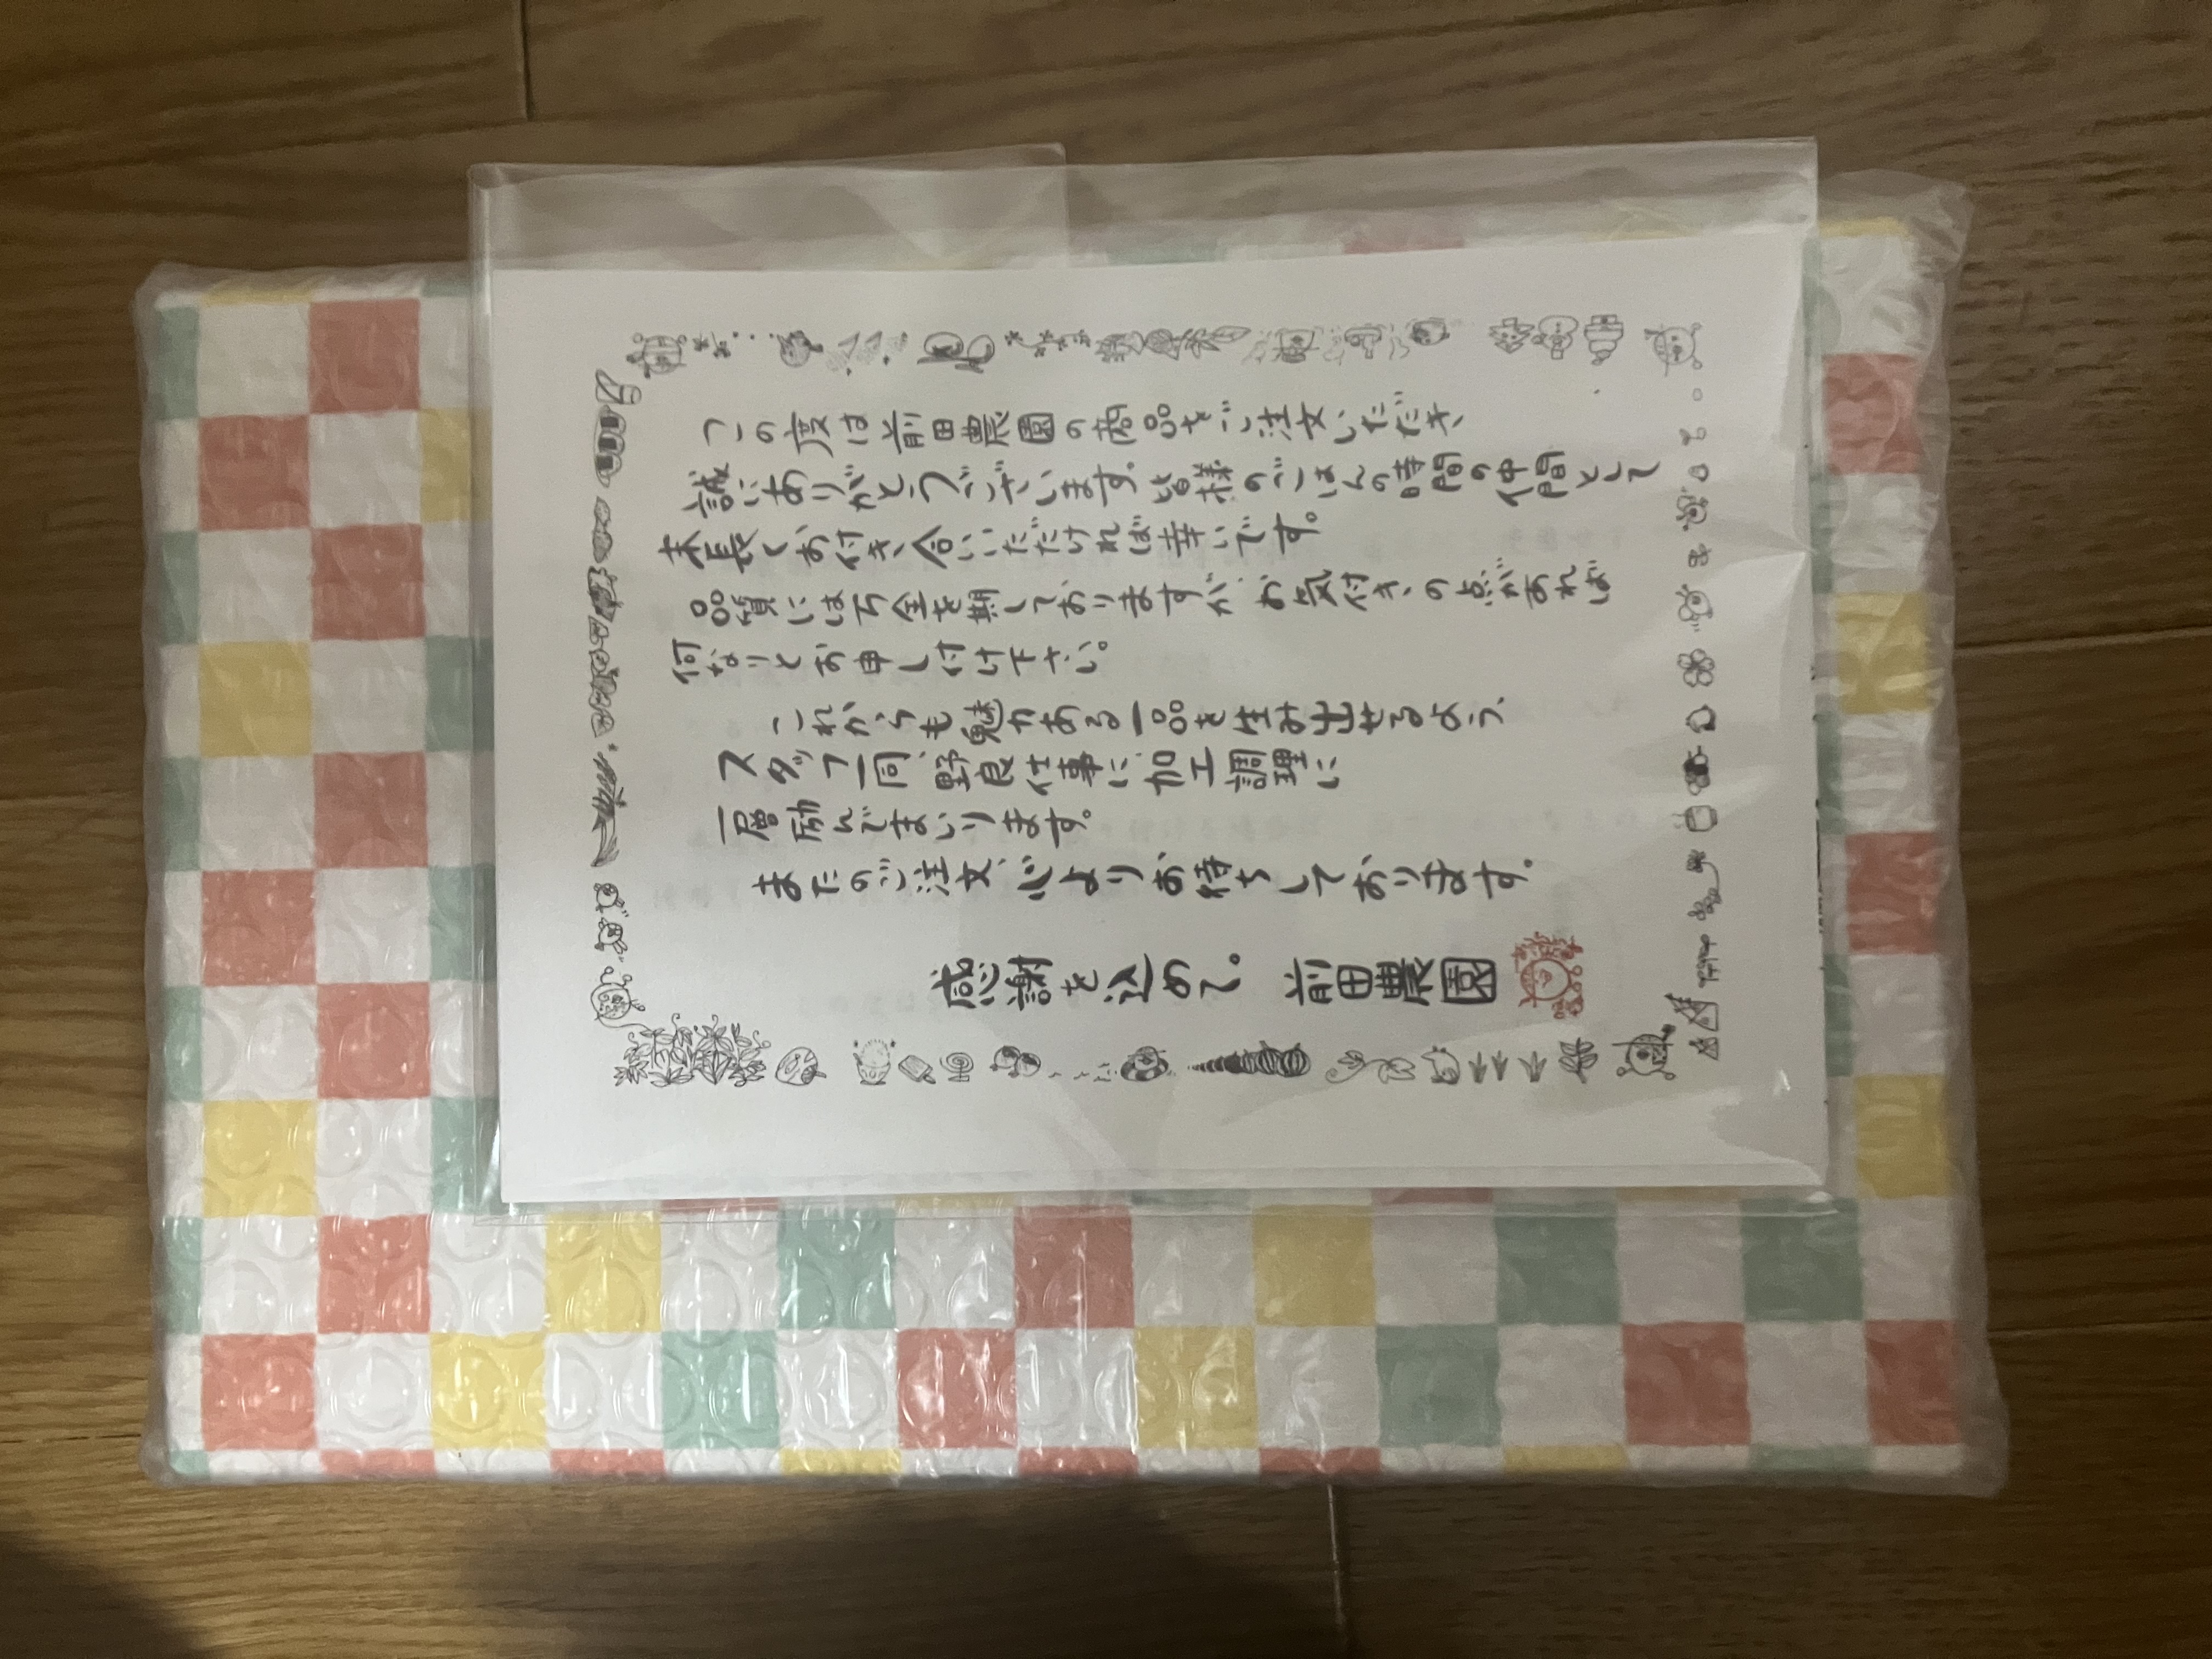 この度は前田農園の商品をご注文いただき、
誠にありがとうございます。皆様のごはんの時間の仲間として
末長くお付き合いいただければ幸いです。
品質には万全を期しておりますが、お気付きの点があれば
何なりとお申し付け下さい。
これからも魅力ある一品を生み出せるよう、
スタッフ一同、野良仕事に、加工調理に
一層励んでまいります。
またのご注文、心よりお待ちしております。
感謝を込めて。 前田農園